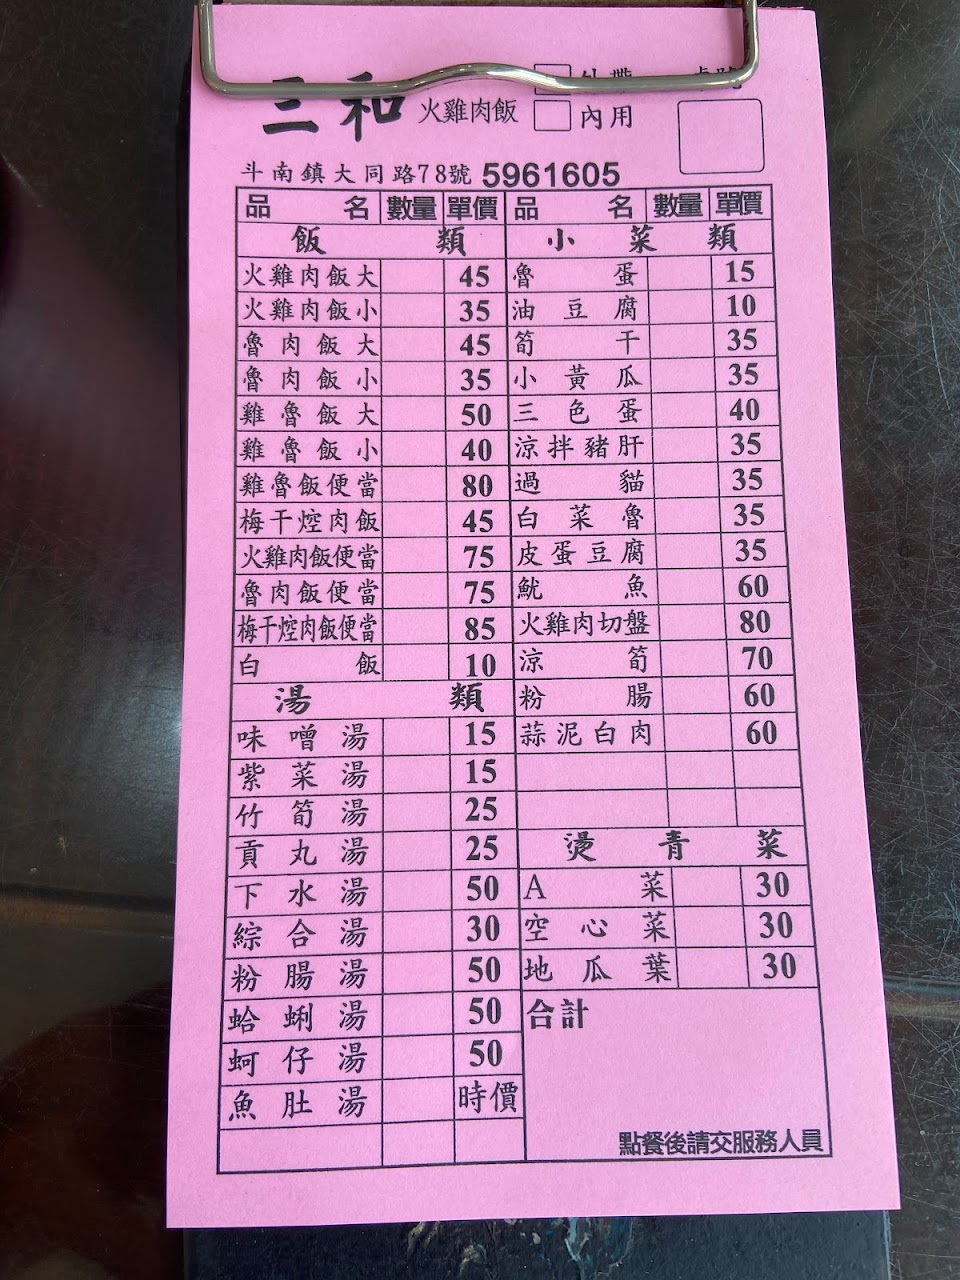 三和 火雞肉飯 外帶 桌號
內用
斗南鎮大同路78號 5961605
品名 數量 單價 品名 數量 單價
飯類 小菜類
火雞肉飯大 45 魯蛋 15
火雞肉飯小 35 油豆腐 10
魯肉飯大 45 筍干 35
魯肉飯小 35 小黃瓜 35
雞魯飯大 50 三色蛋 40
雞魯飯小 40 涼拌豬肝 35
雞魯飯便當 80 過貓 35
梅干焢肉飯 45 白菜魯 35
火雞肉飯便當 75 皮蛋豆腐 35
魯肉飯便當 75 魷魚 60
梅干焢肉飯便當 85 火雞肉切盤 80
白飯 10 涼筍 70
湯類 粉腸 60
味噌湯 15 蒜泥白肉 60
紫菜湯 15
竹筍湯 25
貢丸湯 25 燙青菜
下水湯 50 A菜 30
綜合湯 30 空心菜 30
粉腸湯 50 地瓜葉 30
蛤蜊湯 50 合計
蚵仔湯 50
魚肚湯 時價
點餐後請交服務人員